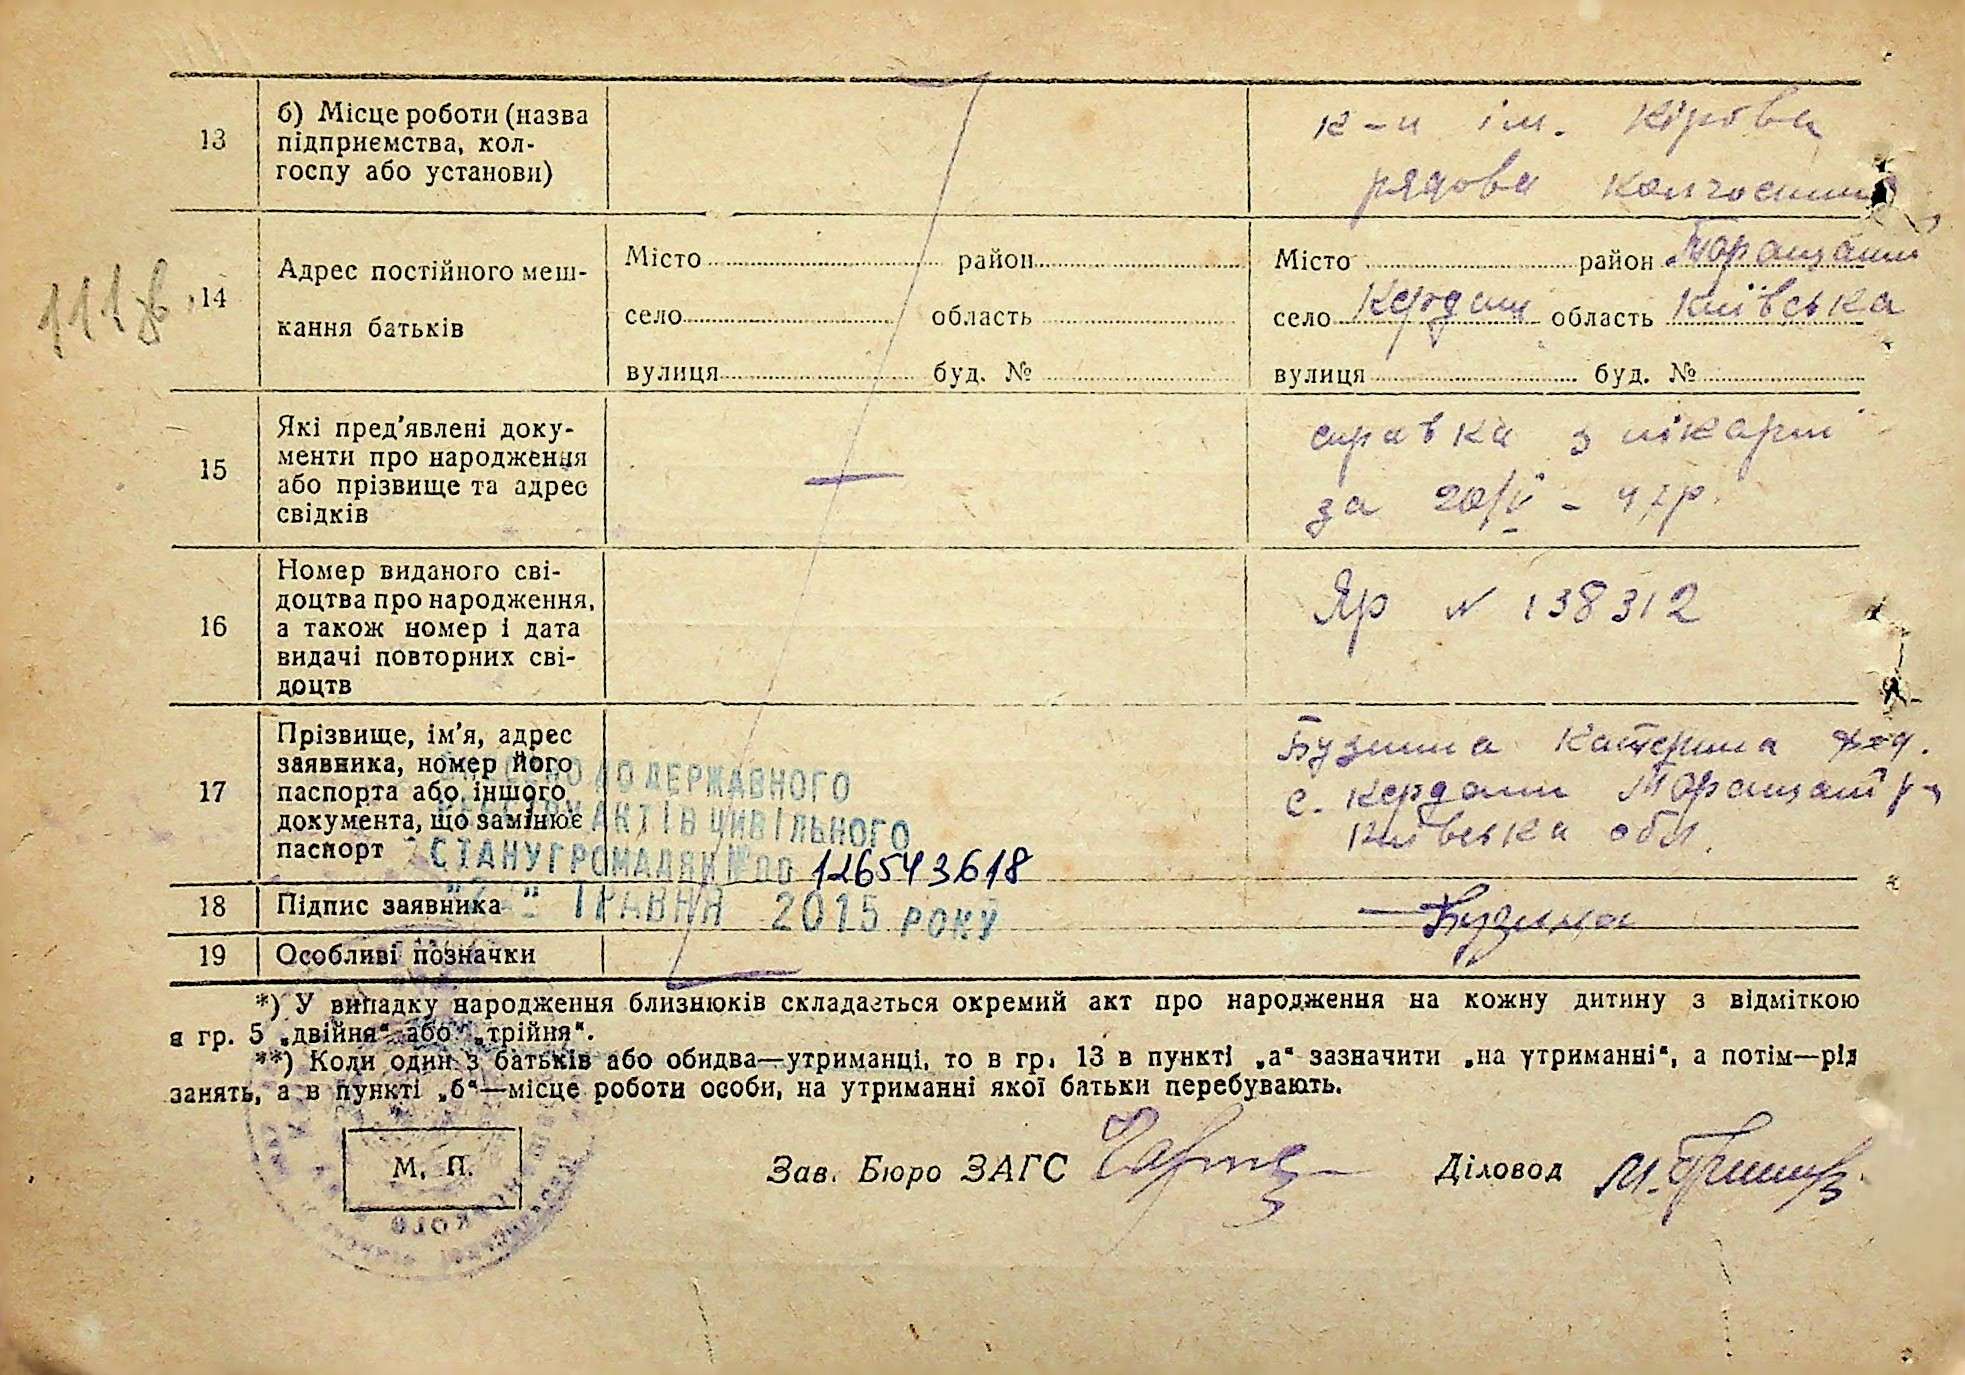 13
б) Місце роботи (назва
підприємства, кол-
госпу або установи)
к-п ім. Кірова
рядова колгоспниц
111 в.
14
Адрес постійного меш-
кання батьків
Місто район
село область
вулиця буд. №
Місто район Таращанс
село Кердани область Київська
вулиця буд. №
15
Які пред'явлені доку-
менти про народження
або прізвище та адрес
свідків
—
справка з лікарні
за 20/V -
16
Номер виданого сві-
доцтва про народження,
а також номер і дата
видачі повторних сві-
доцтв
Яр N 138312
17
Прізвище, ім'я, адрес
заявника, номер його
паспорта або іншого
документа, що замінює
паспорт
Бузина Катерина
с. Кердани Таращанс р-н
Київська обл.
ВНЕСЕНО ДО ДЕРЖАВНОГО
РЕЄСТРУ АКТІВ ЦИВІЛЬНОГО
СТАНУ ГРОМАДЯН № 00 126543618
ТРАВНЯ 2015 РОКУ
18
Підпис заявника
Бузина
19
Особливі позначки
*) У випадку народження близнюків складається окремий акт про народження на кожну дитину з відміткою
в гр. 5 „двійня“ або „трійня“.
**) Коли один з батьків або обидва—утриманці, то в гр. 13 в пункті „а“ зазначити „на утриманні“, а потім—рід
занять, а в пункті „б“—місце роботи особи, на утриманні якої батьки перебувають.
М. П.
Зав. Бюро ЗАГС
Діловод